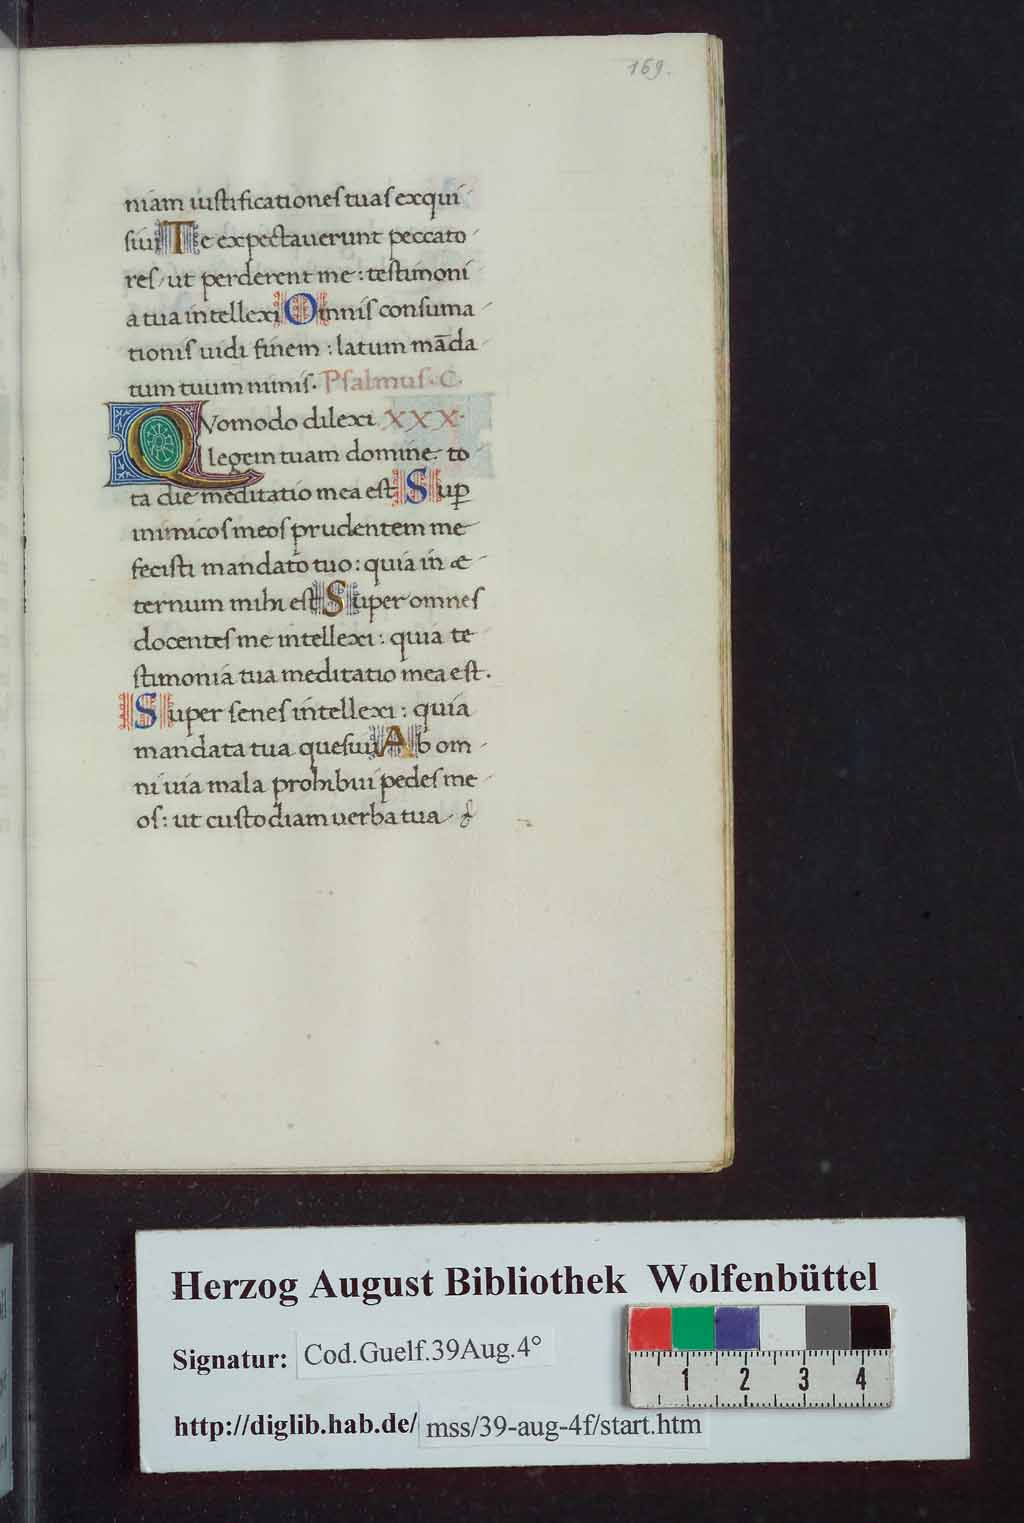 169.
niam iustificationes tuas exqui
siui Te expectauerunt peccato
res, ut perderent me: testimoni
a tua intellexi Omnis consuma
tionis uidi finem: latum mãda
tum tuum nimis. Psalmus. C.
QVomodo dilexi XXX.
legem tuam domine, to
ta die meditatio mea est Sup̱
inimicos meos prudentem me
fecisti mandato tuo: quia in æ
ternum mihi est Super omnes
docentes me intellexi: quia te
stimonia tua meditatio mea est.
Super senes intellexi: quia
mandata tua quesiui Ab om
ni uia mala prohibui pedes me
os: ut custodiam uerba tua
Herzog August Bibliothek Wolfenbüttel
Signatur: Cod.Guelf.39Aug.4°
1 2 3 4
http://diglib.hab.de/ mss/39-aug-4f/start.htm